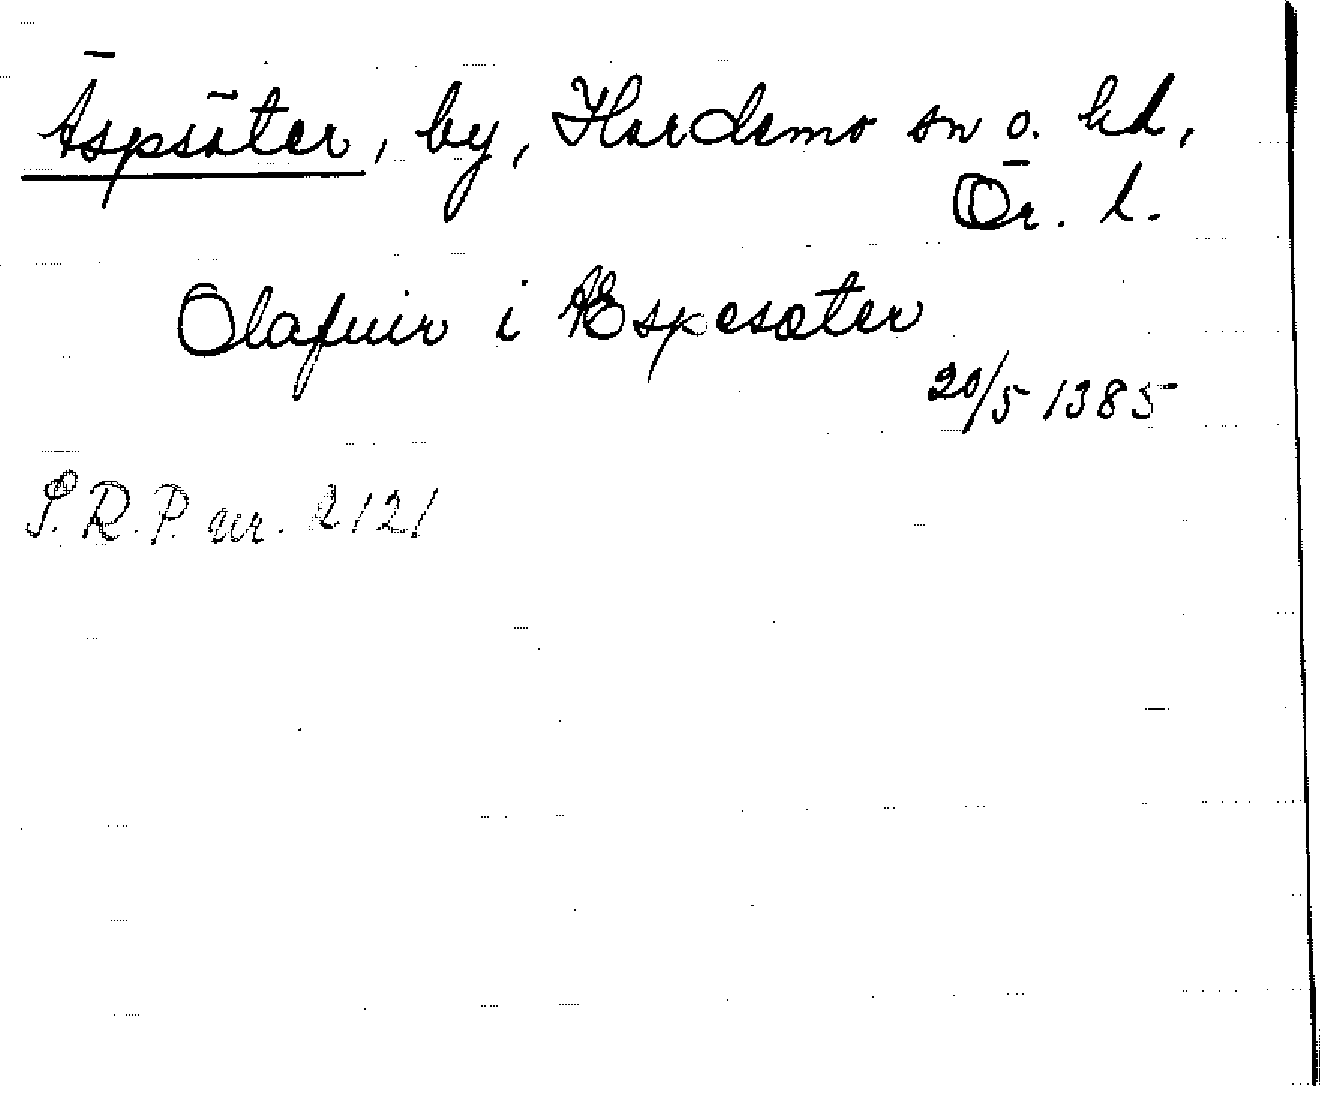 Äspsäter, by, Hardemo sn o. hd,
Ör. l.
Olafuir i Æspesæter
20/5 1385
S.R.P. nr. 2121